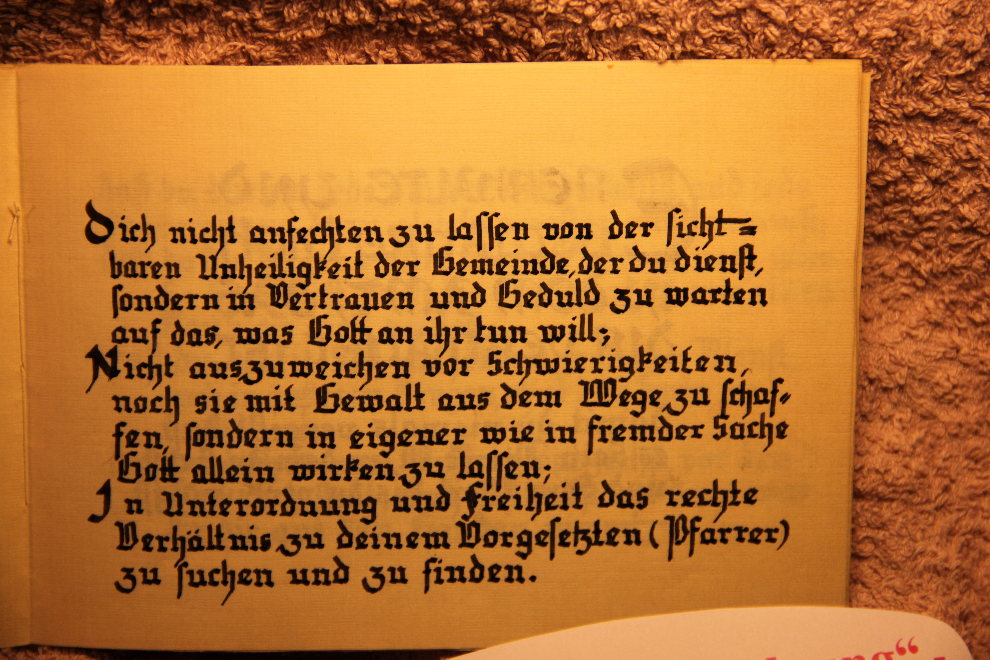 Dich nicht anfechten zu lassen von der sicht=
baren Unheiligkeit der Gemeinde, der du dienst,
sondern in Vertrauen und Geduld zu warten
auf das, was Gott an ihr tun will;
Nicht auszuweichen vor Schwierigkeiten,
noch sie mit Gewalt aus dem Wege zu schaf-
fen, sondern in eigener wie in fremder Sache
Gott allein wirken zu lassen;
In Unterordnung und Freiheit das rechte
Verhältnis zu deinem Vorgesetzten (Pfarrer)
zu suchen und zu finden.